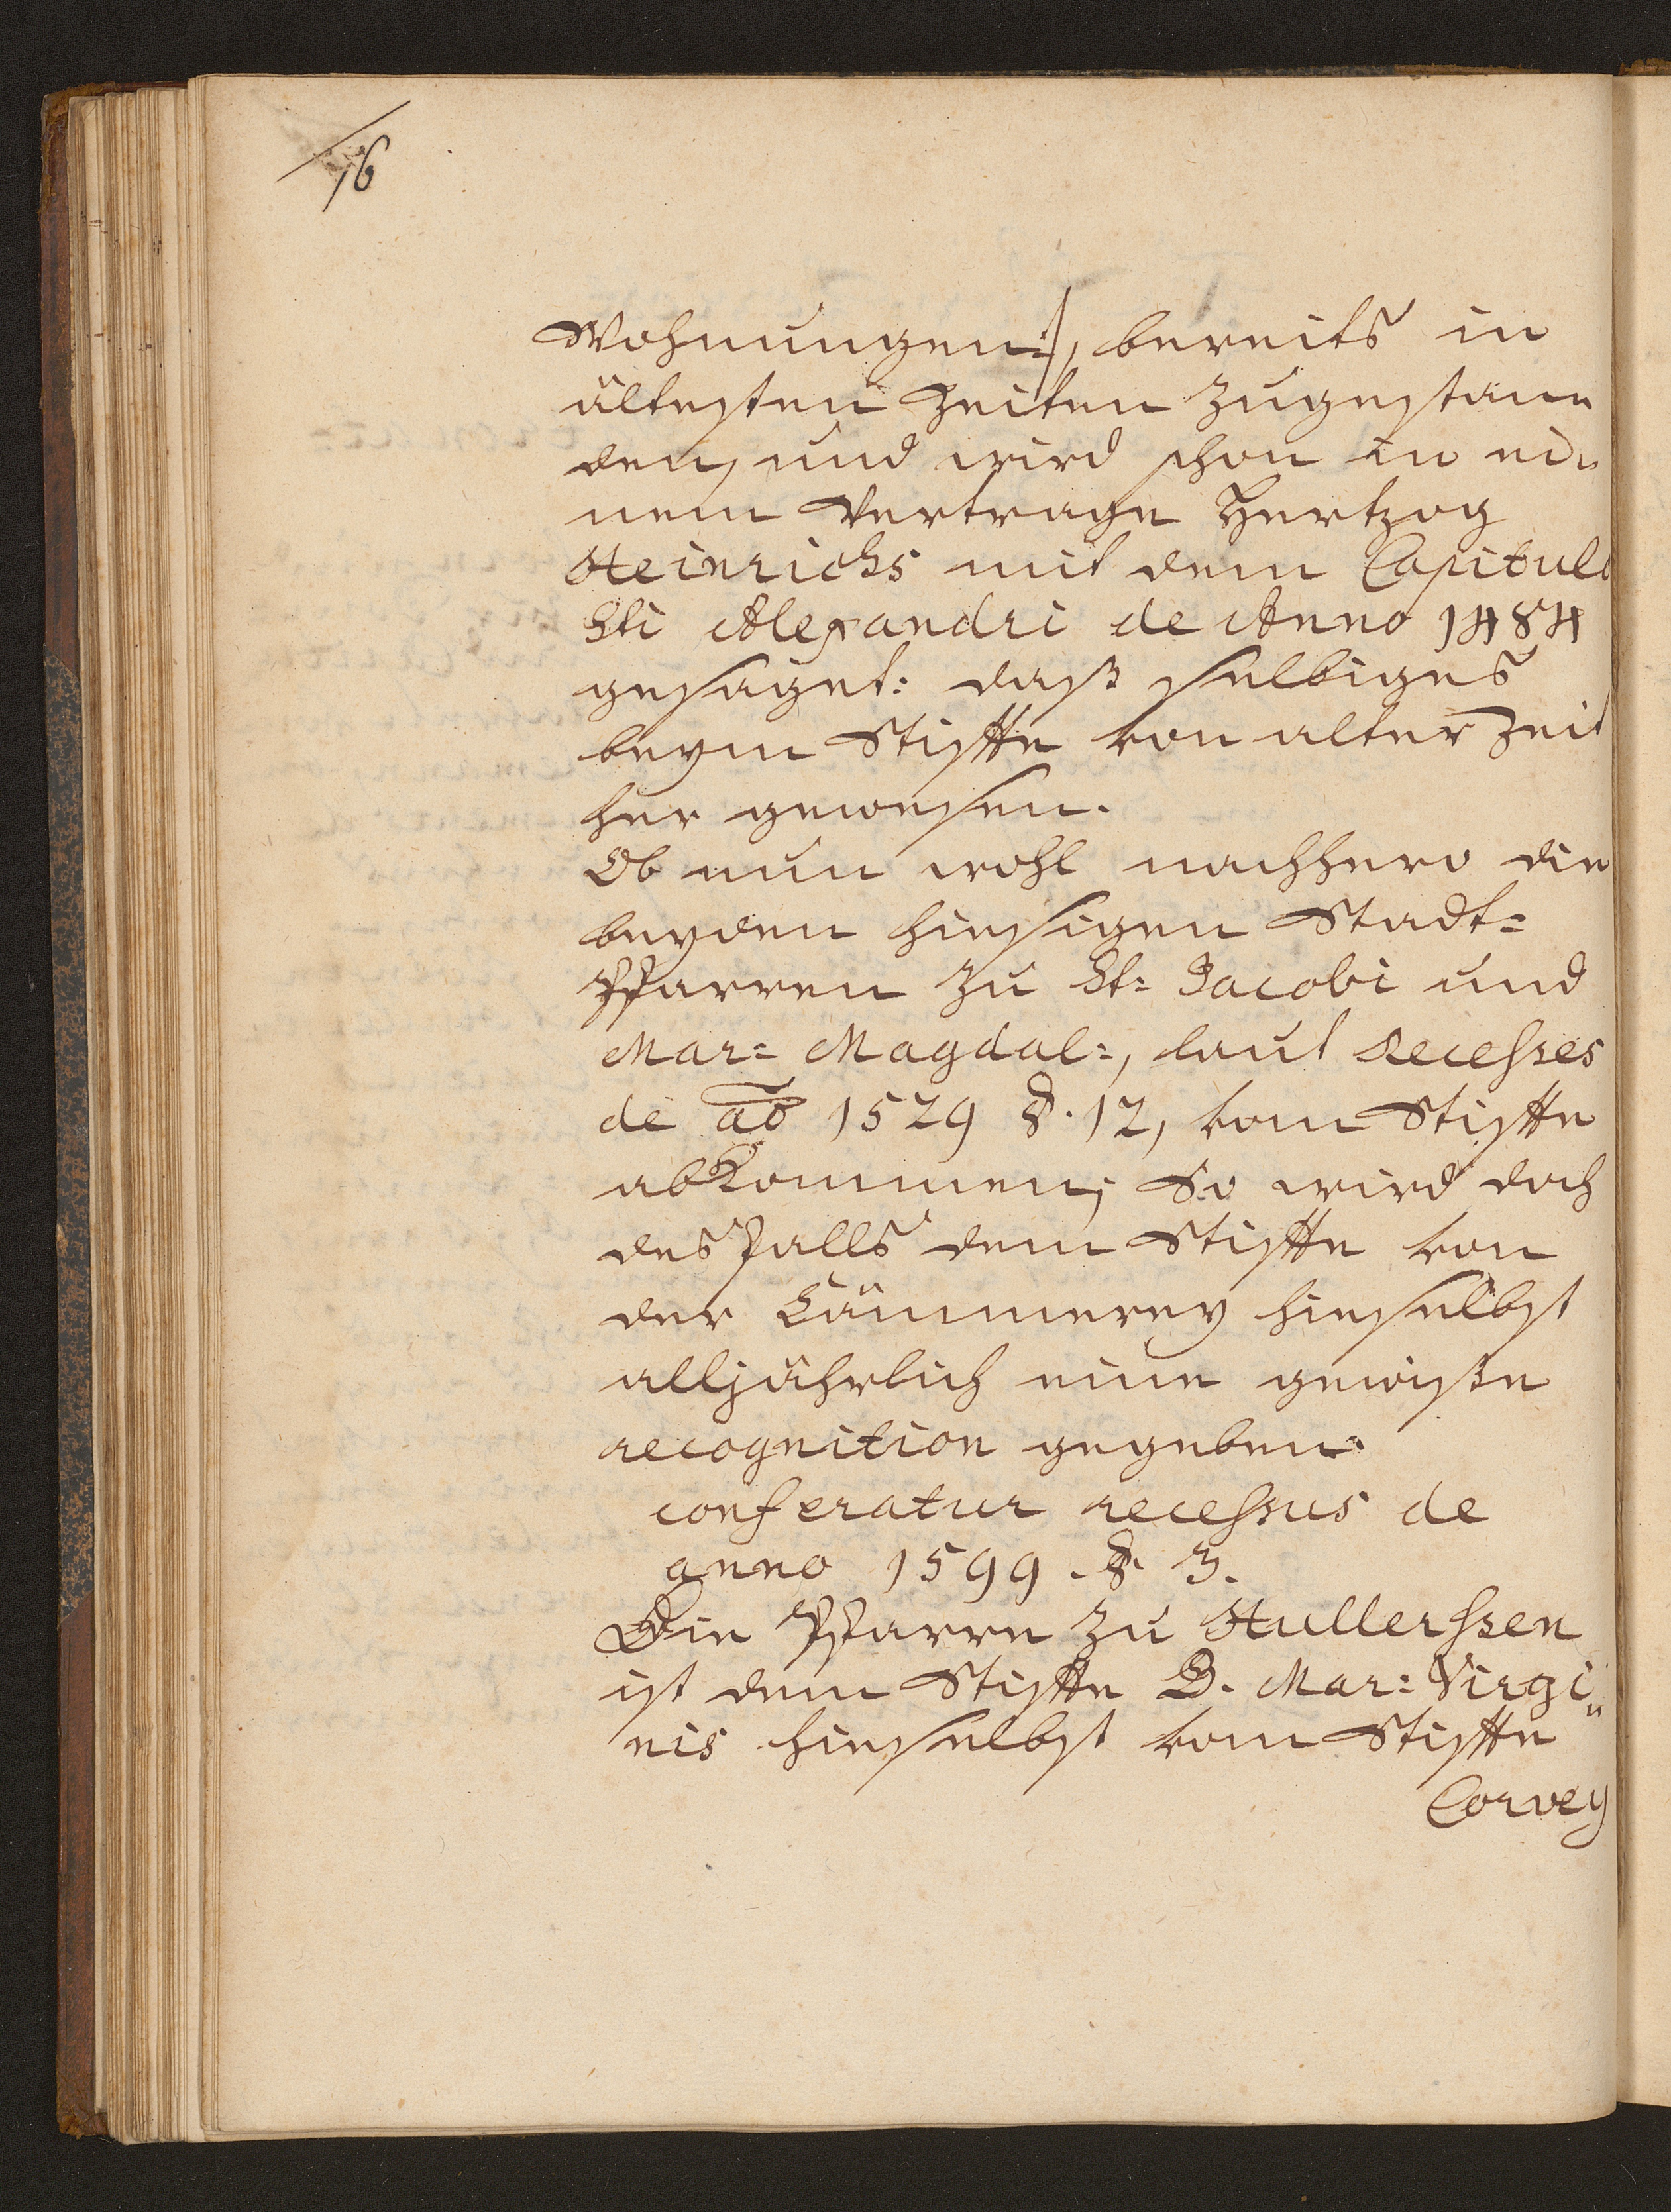 16
Wohnungen:/, bereits in
ältesten Zeiten zugestan„
den, und wird schon in ei„
nem Vertrage Hertzog
Heinrichs mit dem Capitulo
Sti Alexandri de Anno 1484
gesaget: daß selbiges
beym Stiffte von alter Zeit
her gewesen.
Ob nun wohl nachhero die
beyden hiesigen Stadt=
Pfarren zu St: Jacobi und
Mar: Magdal:, laut recesses
de ao 1529 §. 12, vom Stiffte
abkommen; So wird doch
desfalls dem Stiffte von
der Cämmerey hieselbst
alljährlich eine gewiße
recognition gegeben.
conferatur recessus de
anno 1599. §. 3.
Die Pfarre zu Hullerssen
ist dem Stiffte B. Mar: Virgi„
nis hieselbst vom Stiffte
Corvey